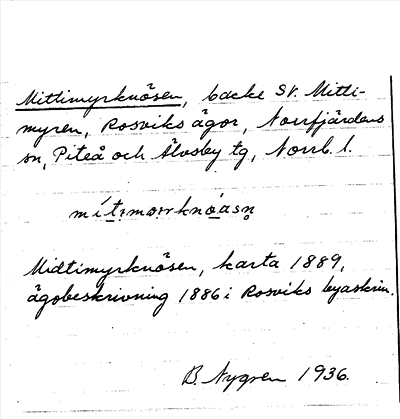 Mittimyrknösen, backe SV. Mitti-
myren, Rosviks ägor, Norrfjärdens
sn, Piteå och Älvsby tg, Norrb. l.
Midtimyrknösen, karta 1889,
ägobeskrivning 1886 i Rosviks byaskrin.
B. Nygren 1936.